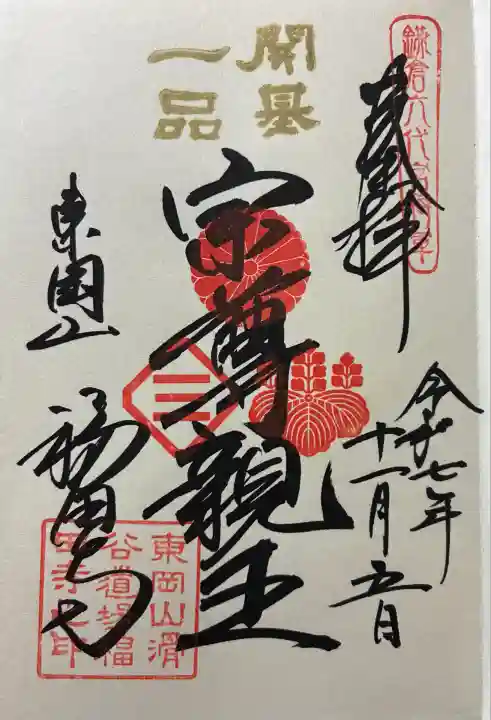 鎌倉六代
奉拝
令和七年
十一月五日
開基
一品
宗尊親王
東岡山
福田寺
東岡山滑
谷道場福
田寺之印